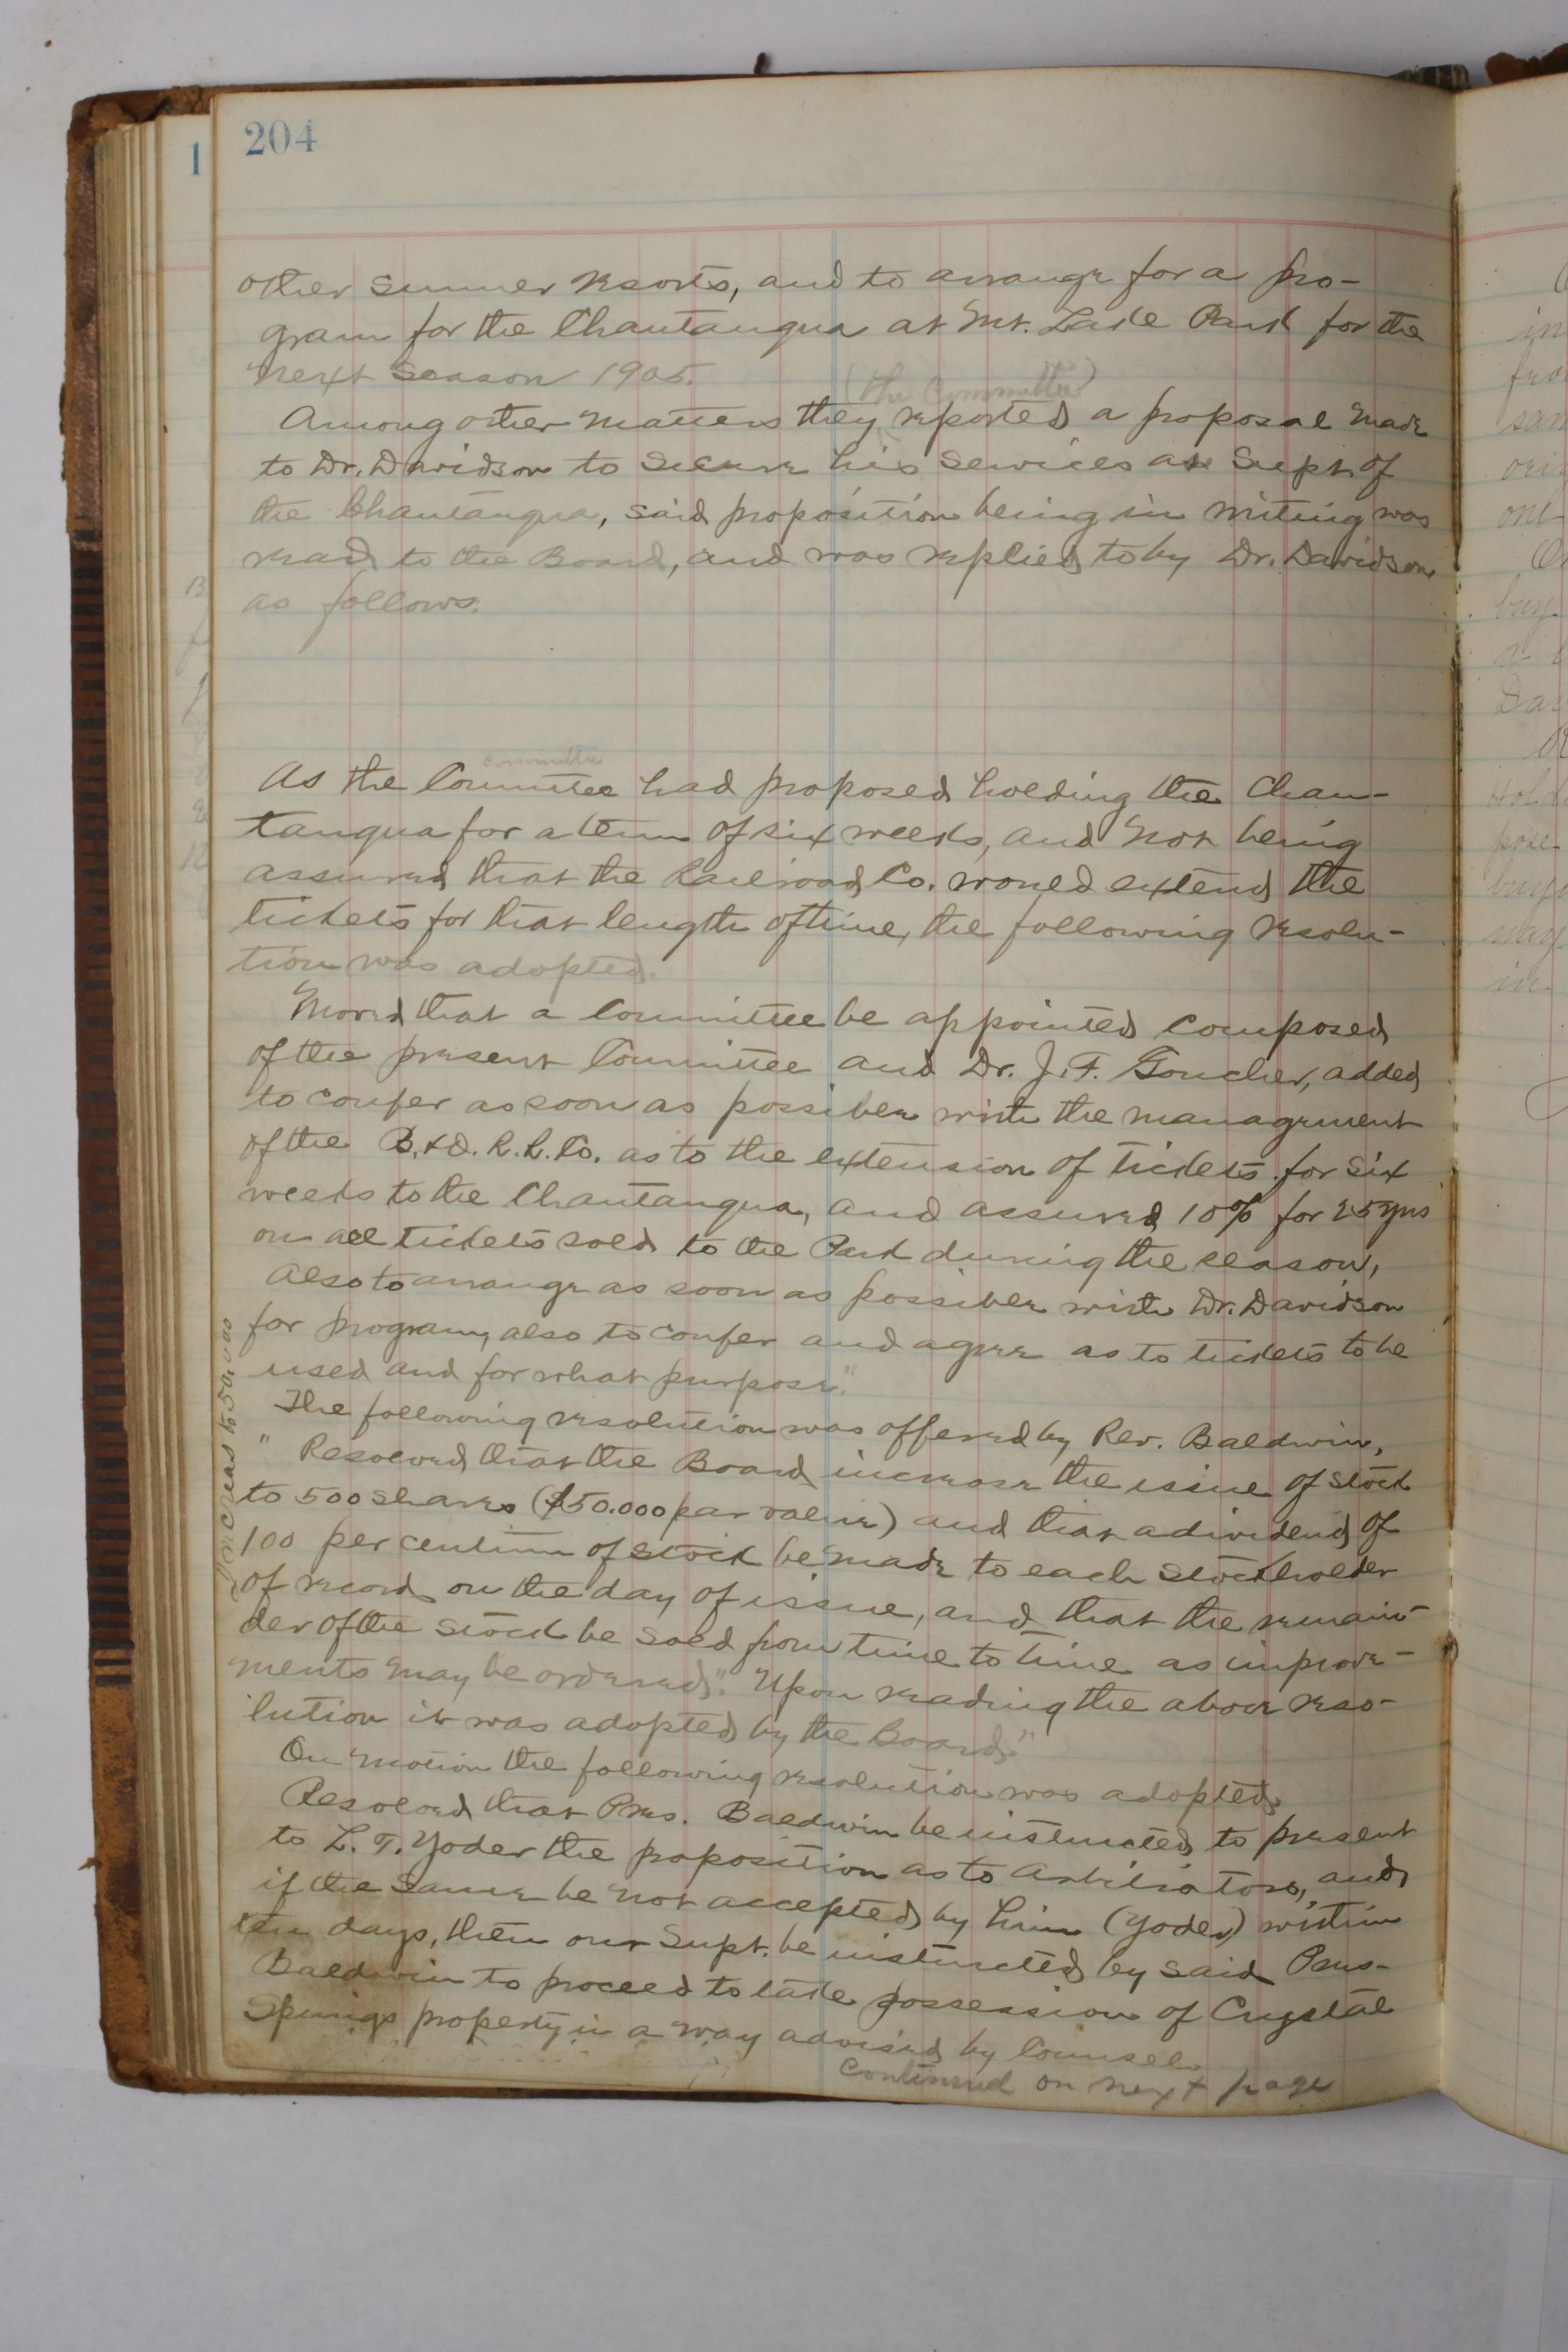 204
1
other summer resorts, and to arrange for a pro-
gram for the Chautauqua at Mt. Lake Park for the
next season 1905.
(the Committee)
Among other matters they reported a proposal made
to Dr. Davidson to secure his services as Supt. of
the Chautauqua, said proposition being in writing was
read to the Board, and was replied to by Dr. Davidson
as follows.
committee
As the Committee had proposed holding the Chau-
tauqua for a term of six weeks, and not being
assured that the Railroad Co. would extend the
tickets for that length of time, the following resolu-
tion was adopted.
Moved that a Committee be appointed composed
of the present Committee and Dr. J. F. Goucher, added
to confer as soon as possible with the management
of the B. & O. R. R. Co. as to the extension of tickets for six
weeks to the Chautauqua, and assured 10% for 25 yrs
on all tickets sold to the Park during the season,
Also to arrange as soon as possible with Dr. Davidson
for program, also to confer and agree as to tickets to be
used and for what purpose."
The following resolution was offered by Rev. Baldwin,
" Resolved that the Board increase the issue of stock
to 500 shares ($50.000 par value) and that a dividend of
100 per centum of stock be made to each stockholder
of record on the day of issue, and that the remain-
der of the stock be sold from time to time as improve-
ments may be ordered." Upon reading the above reso-
lution it was adopted by the Board."
On motion the following resolution was adopted.
Resolved that Pres. Baldwin be instructed to present
to L. T. Yoder the proposition as to arbitrators, and
if the same be not accepted by him (Yoder) within
ten days, then our Supt. be instructed by said Pres-
Baldwin to proceed to take possession of Crystal
Springs property in a way advised by Counsel.
Continued on next page
Increas to 50,000